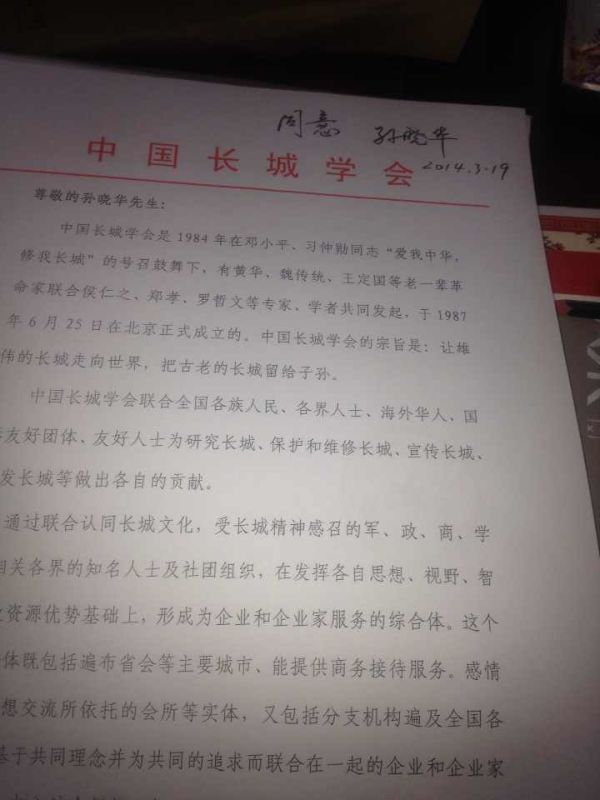 同意 孙晓华
2014.3.19
中国长城学会
尊敬的孙晓华先生：
中国长城学会是1984年在邓小平、习仲勋同志“爱我中华，
修我长城”的号召鼓舞下，有黄华、魏传统、王定国等老一辈革
命家联合侯仁之、郑孝、罗哲文等专家、学者共同发起，于1987
年6月25日在北京正式成立的。中国长城学会的宗旨是：让雄
伟的长城走向世界，把古老的长城留给子孙。
中国长城学会联合全国各族人民、各界人士、海外华人、国
友好团体、友好人士为研究长城、保护和维修长城、宣传长城、
发长城等做出各自的贡献。
通过联合认同长城文化，受长城精神感召的军、政、商、学
相关各界的知名人士及社团组织，在发挥各自思想、视野、智
资源优势基础上，形成为企业和企业家服务的综合体。这个
体既包括遍布省会等主要城市、能提供商务接待服务。感情
想交流所依托的会所等实体，又包括分支机构遍及全国各
基于共同理念并为共同的追求而联合在一起的企业和企业家